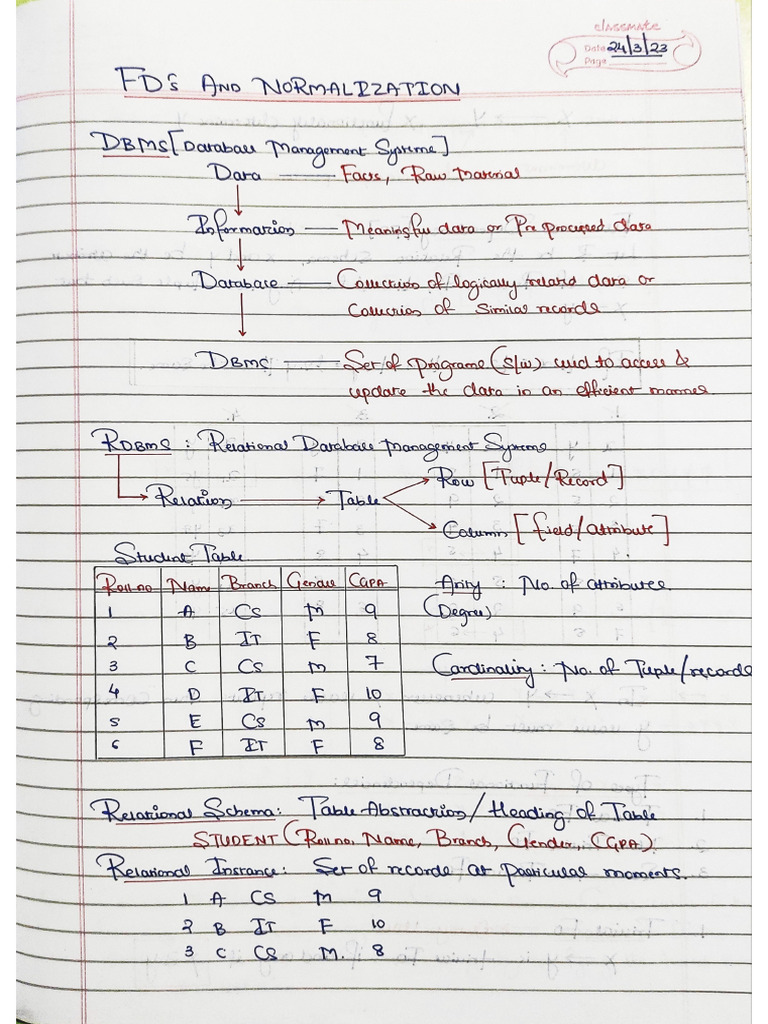 classmate
Date 24/3/23
Page
FD's AND NORMALIZATION
DBMS [Database Management Systems]
Data — Facts, Raw Material
Information — Meaningful data or Pre processed data
Database — Collection of logically related data or
Collection of similar records
DBMS — Set of programs (S/w) used to access &
update the data in an efficient manner.
RDBMS : Relational Database Management Systems
Row [Tuple/Record]
Relation → Table
Column [field/attribute]
Student Table
Roll.no Name Branch Gender CGPA
1 A CS M 9
2 B IT F 8
3 C CS M 7
4 D IT F 10
5 E CS M 9
6 F IT F 8
Arity : No. of attributes
(Degree)
Cardinality : No. of Tuple/records
Relational Schema: Table Abstraction / Heading of Table
STUDENT (Roll.no, Name, Branch, Gender, CGPA)
Relational Instance: Set of records at particular moments.
1 A CS M 9
2 B IT F 10
3 C CS M. 8